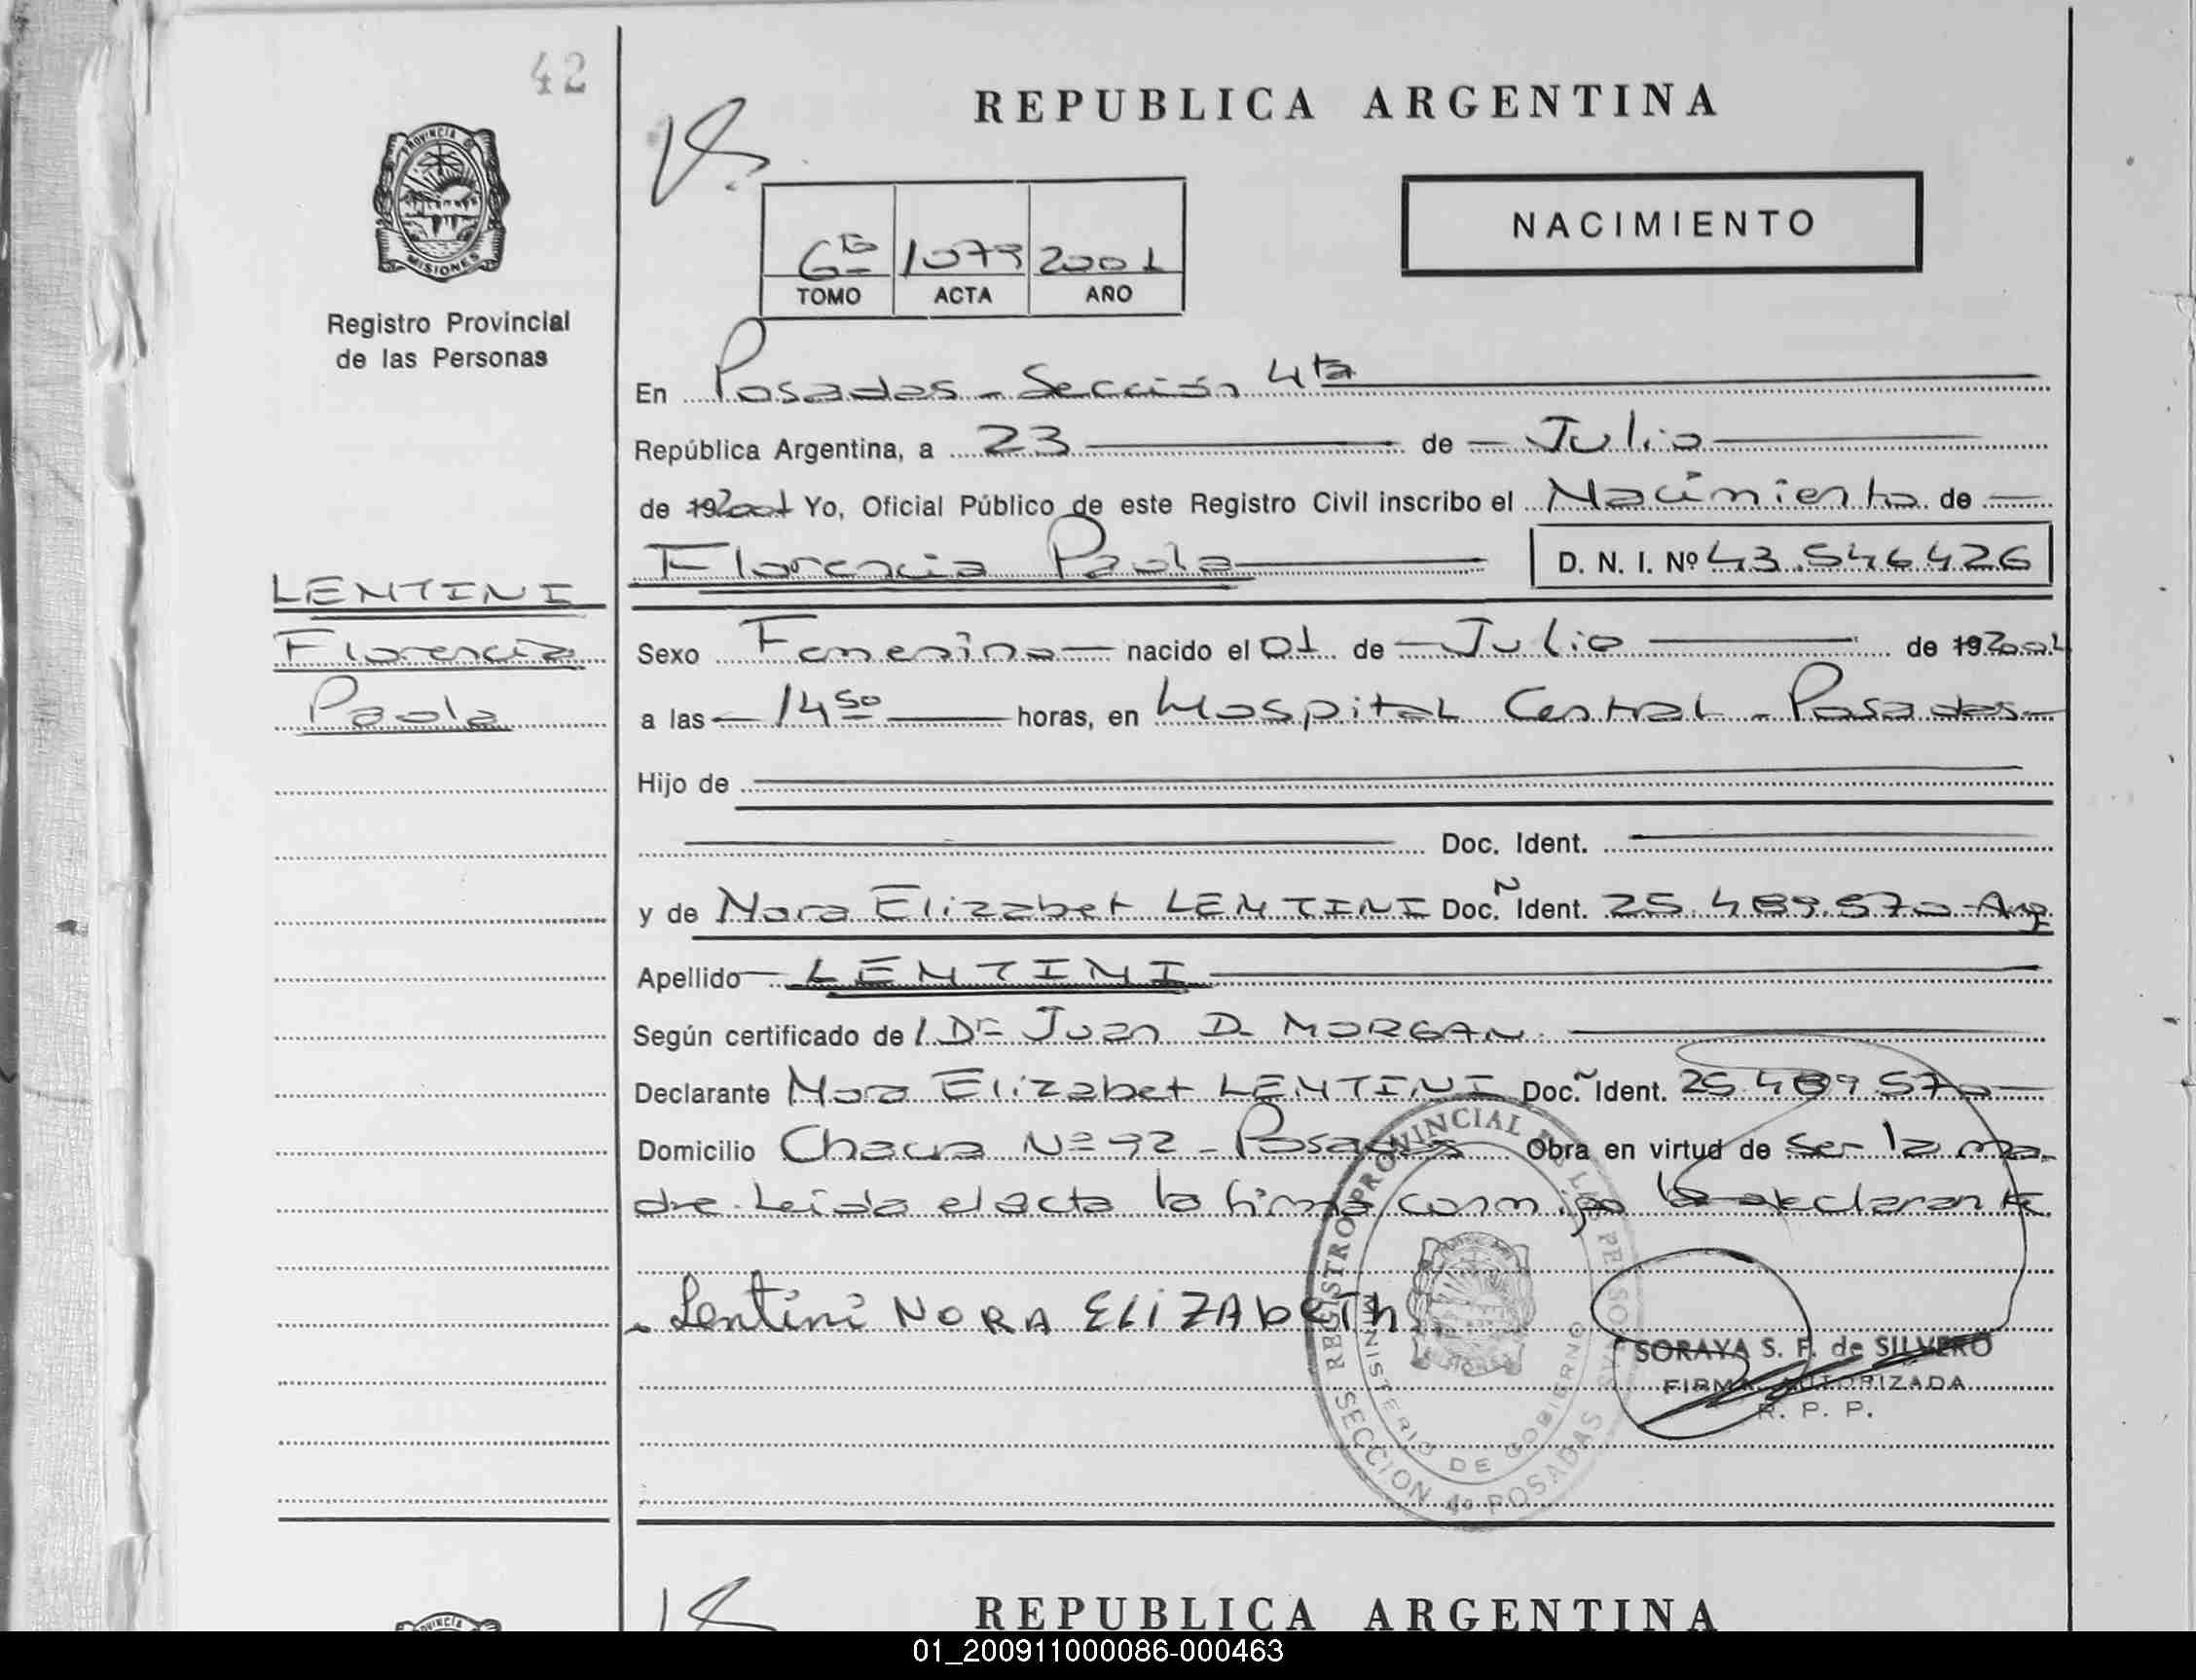 42
REPUBLICA ARGENTINA
PROVINCIA DE
MISIONES
NACIMIENTO
1079 2001
TOMO ACTA AÑO
Registro Provincial
de las Personas
En Posadas - Sección 4ta
República Argentina, a 23 de Julio
de 192001 Yo, Oficial Público de este Registro Civil inscribo el Nacimiento de
Florencia Paola D. N. I. Nº 43.546.426
LENTINI
Florencia
Paola
Sexo Femenino nacido el 01 de Julio de 192001
a las 14 50 horas, en Hospital Central - Posadas
Hijo de
Doc. Ident.
y de Nora Elizabet LENTINI Doc. N Ident. 25.489.570 - Arg
Apellido LENTINI
Según certificado de l Dr Juan D. MORGAN
Declarante Nora Elizabet LENTINI Doc. Ident. 25.489.570
Domicilio Chacra Nº 92 - Posadas Obra en virtud de ser la ma-
dre. Leida el acta la firma conmigo la declarante
Lentini NORA ELIZAbETh
REGISTRO PROVINCIAL DE LAS PERSONAS
MINISTERIO DE GOBIERNO
SECCION 4º POSADAS
SORAYA S. F. de SILVERO
FIRMA AUTORIZADA
R. P. P.
REPUBLICA ARGENTINA
01_200911000086-000463